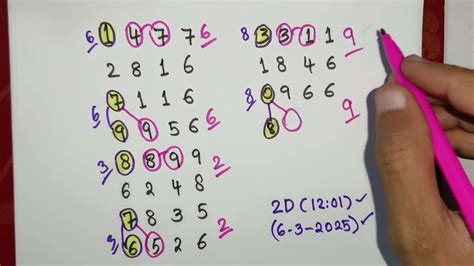 6 1 4 7 7 6
2 8 1 6
7 1 1 6
6 9 9 5 6 6
3 8 8 9 9 2
6 2 4 8
7 8 3 5
3 6 5 2 6 2
8 3 3 1 1 9
1 8 4 6
8 0 9 6 6
8 9
2D (12:01) ✓
(6-3-2025) ✓